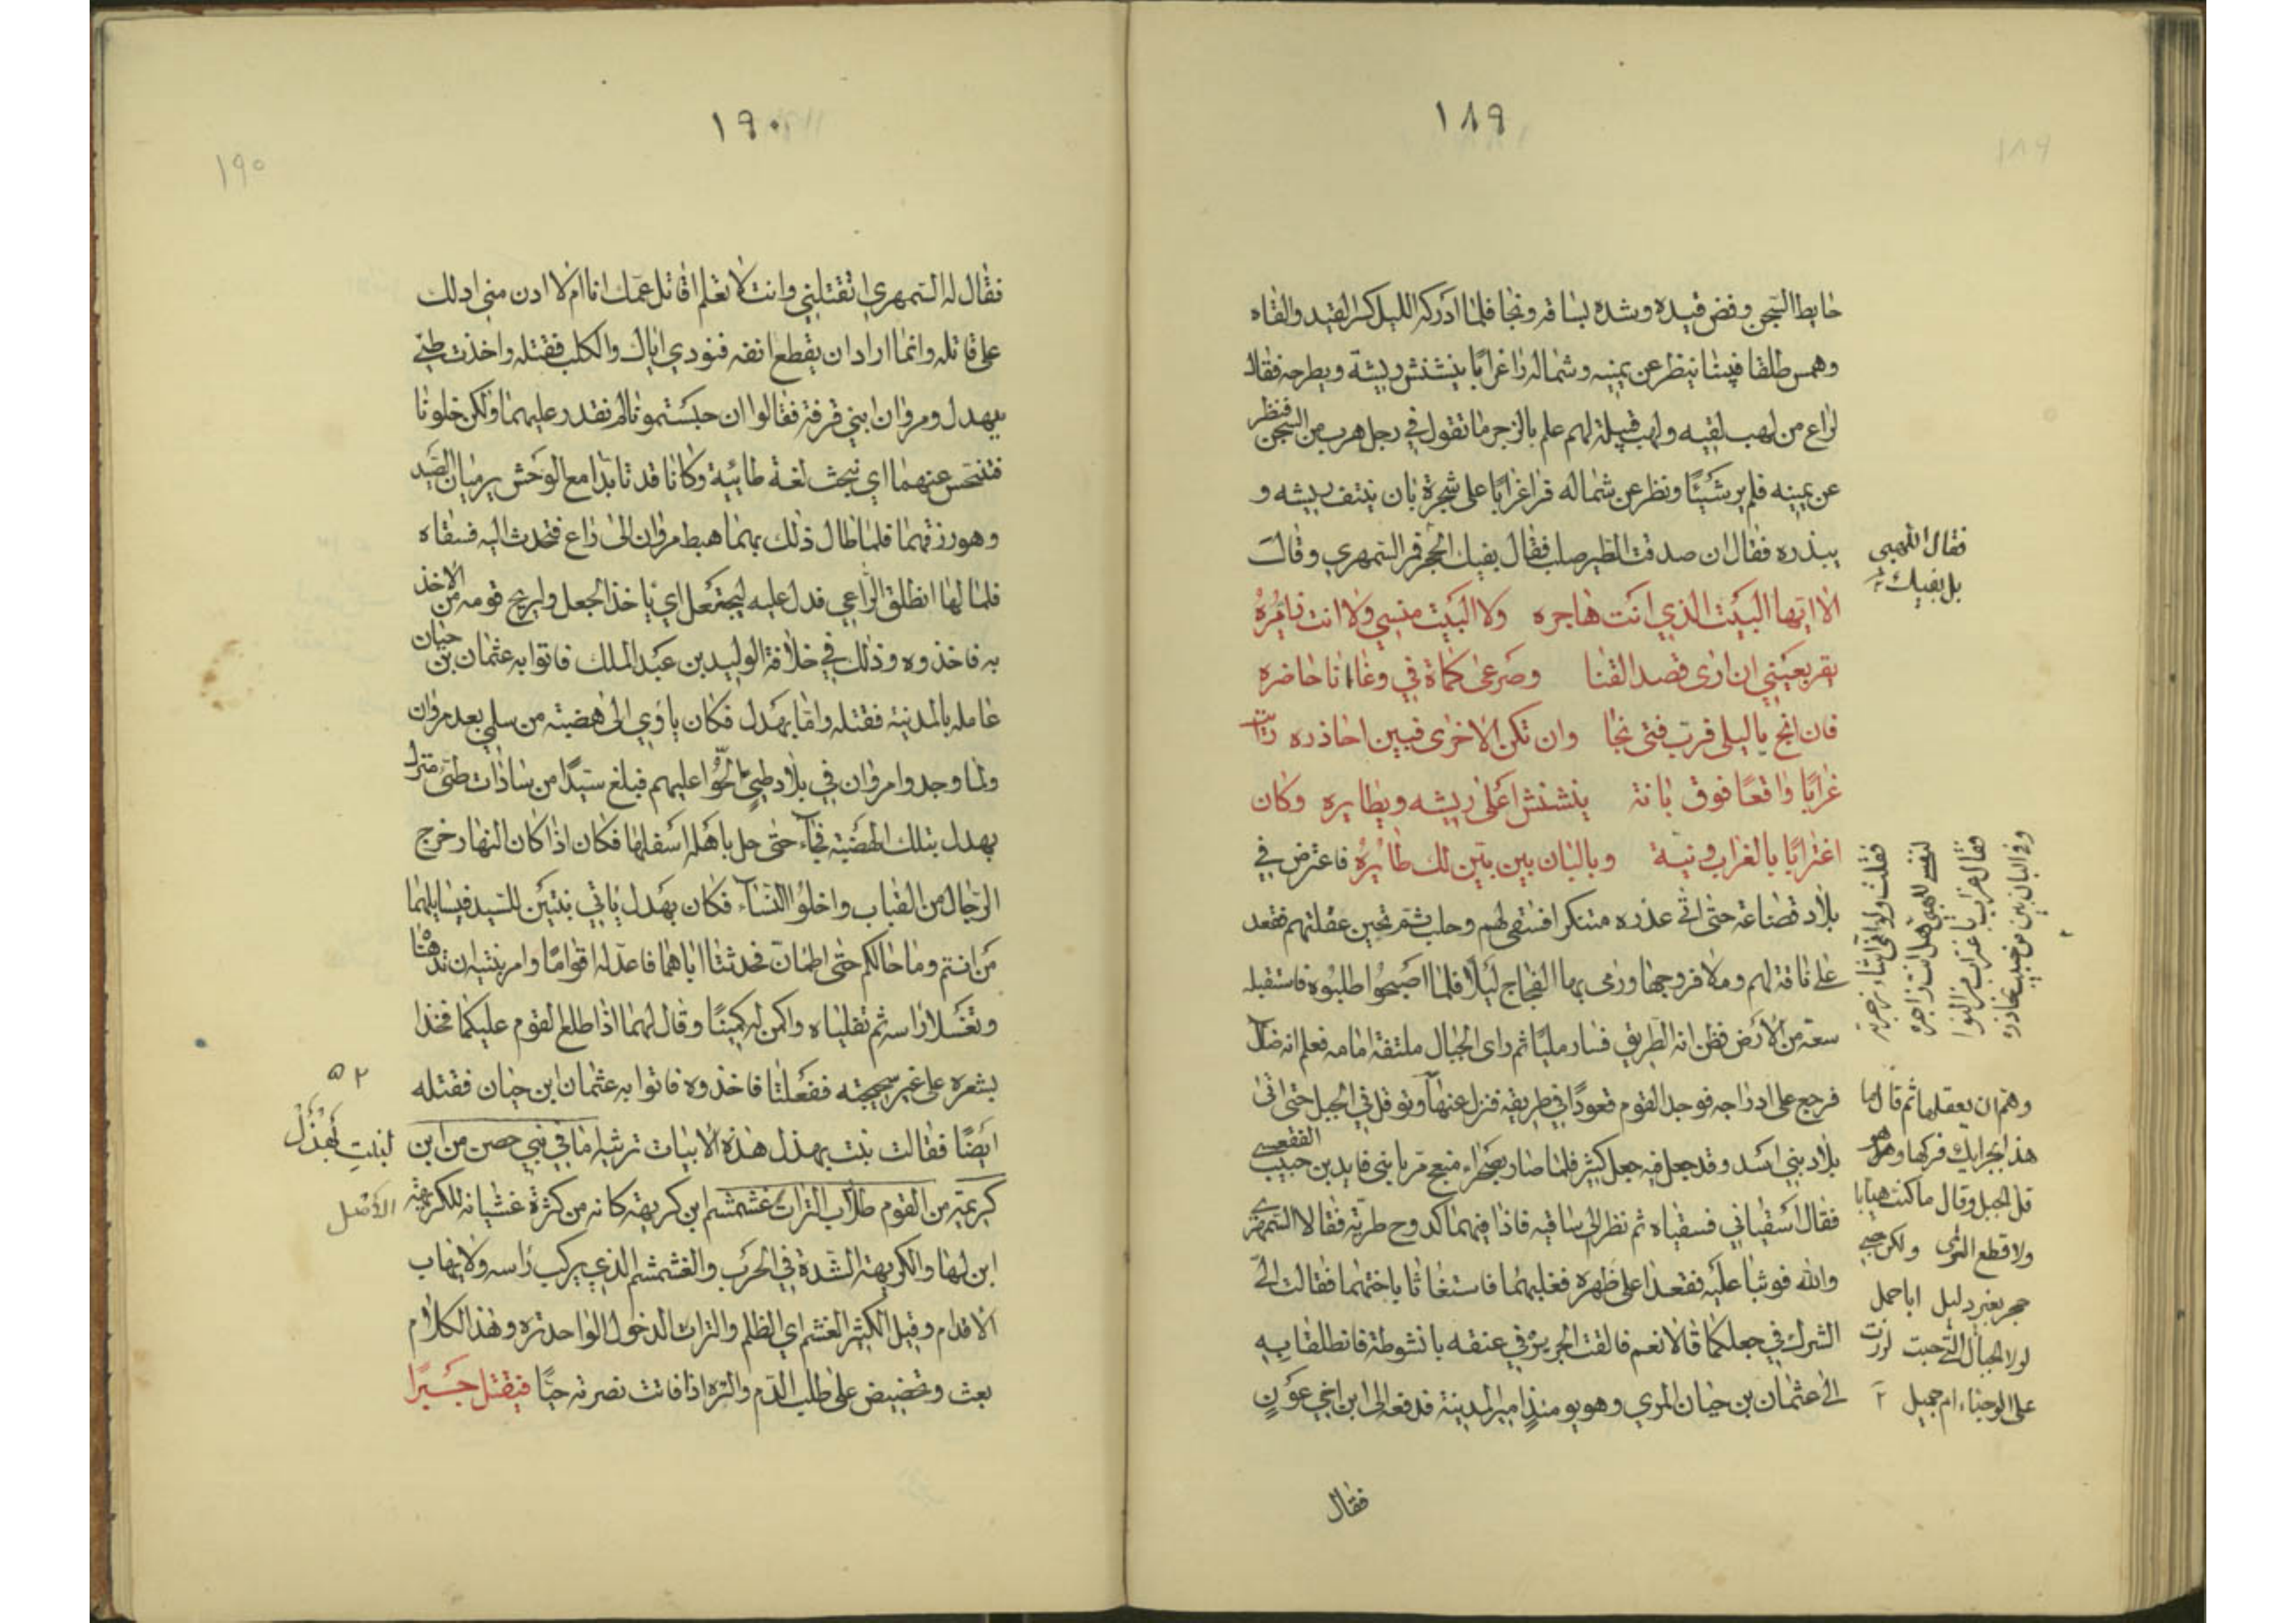 ١٨٩
١٨٩
حايط السجن وفض قيده وشده بساقه ونجا فلما ادركه الليل كسر القيد والقاه
وهمس طلقا فبينا ينظر عن يمينه وشماله راغرابًا ينشنش ريشة ويطرحه فقال
لراع من لهب لقيه ولهب قبيلة لهم علم بالزجر ما تقول في رجل هرب من السجن فنظر
عن يمينه فلم ير شيئًا ونظر عن شماله فراغرابًا على شجرة بان ينتف ريشه و
يبذره فقال ان صدقت الطير صلب فقال بفيك الحجر فر السمهري وقالت
الا ايها البيت الذي انت هاجره ولا البيت منسي ولا انت زايره
يقر بعيني ان ارى قصد القنا وصرعى كماة في وغا انا حاضره
فان انج يا ليلى فرب فتى نجا وان تكن الاخرى فبين احاذره رايت
غرابًا واقعًا فوق بانة ينشنش اعلى ريشه ويطايره وكان
اغترابًا بالغراب ونية وبالبان بين بين لك طايره فاعترض في
بلاد قضاعة حتى اتى عذره متنكرا فستقى لهم وحلب ثم تحين غفلتهم فقعد
على ناقة لهم وملا فروجها ورمى بها الفجاج ليلًا فلما اصبحوا طلبوه فاستقبله
سعة من الارض فظن انه الطريق فسار مليًا ثم راى الجبال ملتفة امامه فعلم انه ضال
فرجع على ادراجه فوجد القوم قعودًا في طريقه فنزل عنها وتوقل في الجبل حتى اتى
بلاد بني اسد وقد جعل فيه جعل كثير فلما صار بصحراء منعج مر بابني فايد بن حبيب الفقعسي
فقال اسقياني فسقياه ثم نظر الى ساقيه فاذا فيهما كدوح طرية فقالا السمهري
والله فوثبا عليه فقعدا على ظهره فغلبهما فاستغاثا باختهما فقالت الى
الشرك في جعلكما قالا نعم فالقت الجرير في عنقه بانشوطة فانطلقا به
الى عثمان بن حيان المري وهو يومئذ امير المدينة فدفعه الى ابن اخي عون
فقال
فقال اللهبي
بل بفيك
فقلت ولو اني اشاء زجرته
لنفسي للهبي هل انت زاجره
فقال غراب باغتراب من النوا
وفي البان بين من حبيب تحاذره
وهم ان يعقلها ثم قال لها
هذا بجرايك فركها
قل الجبل وقال ما كنت هيابا
ولا قطع
حجر بغير دليل ابا حمل
لولا الجبال التي حبت لزرت
على الوجناء ام جميل
١٩٠
١٩٠
فقال له السمهري اتقتلني وانت لا تعلم اقاتل عمك انا ام لا ادن مني ادلك
على قاتله وانما اراد ان يقطع انفه فنودي اياك والكلب فقتله واخذت طيئ
بهدل ومروان ابني قرفة فقالوا ان حبستمونا لم نقدر عليهما ولكن خلونا
فنتحس عنهما اي نبحث لغة طائية وكانا قد تابدا مع الوحش يرميان الصيد
وهو رزقهما فلما طال ذلك بهما هبط مروان الى راع فتحدث اليه فسقاه
فلما لها انطلق الراعي فدل عليه ليجتعل اي ياخذ الجعل وليريح قومه من الاخذ
به فاخذوه وذلك في خلافة الوليد بن عبد الملك فاتوا به عثمان بن حيان
عامله بالمدينة فقتله واما بهدل فكان ياوي الى هضبة من سلمى بعد مروان
ولما وجدوا مروان في بلاد طيئ الحوا عليهم فبلغ سيدًا من سادات طيئ منزل
بهدل بتلك الهضبة فجاء حتى حل باهله اسفلها فكان اذا كان النهار خرج
الرجال من القباب واخلوا النساء فكان بهدل ياتي بنتين للسيد فيسايلهما
من انتم وما حالكم حتى اطمان فحدثتا اباهما فاعد له اقوامًا وامر بنتيه ان تدهنا
وتغسلا راسه ثم تفلياه واكمن له كمينًا وقال لهما اذا طلع القوم عليكما فخذا
بشعره على غير سجيته ففعلتا فاخذوه فاتوا به عثمان ابن حيان فقتله
ايضًا فقالت بنت بهدل هذه الابيات ترثيه اما في بني حصن من ابن
كريمة من القوم طلاب الترات غشمشم ابن كريهة كانه من كثرة غشيانه للكريهة
ابن لها والكريهة الشدة في الحرب والغشمشم الذي يركب راسه ولا يهاب
الاقدام وقيل الكثير الغشم اي الظلم والترات الدخول الواحد تره وهذا الكلام
بعث وتحضيض على طلب الدم والتره اذا فاتت نصرته حيًا فيقتل جبرًا
٥٢
لبنت بهدل
الاصل